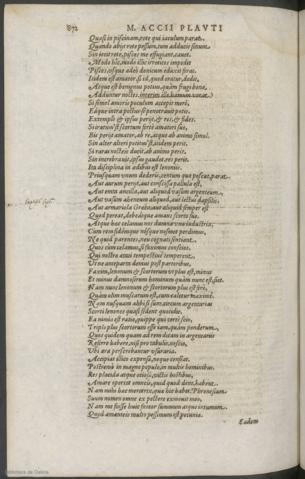 872 M. ACCII PLAVTI
Quasi in piscinam, rete qui iaculum parat.
Quando abijt rete pessum, tum adducit sinum.
Sin iecit rete, pisces ne effugiant, cauet.
Modò huc, modò illuc irretitos impedit
Pisces, vsque adeò donicum eduxit foras.
Itidem est amator, si id, quod oratur, dedit,
Atque est benignus potius, quàm frugi bonæ,
Adduntur noctes, interim ille hamum vorat.
Si semel amoris poculum accepit meri,
Eaque intra pectus se penetrauit potio,
Extemplò & ipsus perijt, & res, & fides.
Si iratum scortum fortè amatori suo,
Bis perit amator, ab re, atque ab animo simul.
Sin alter alteri potius est, itidem perit.
Si raras noctes ducit, ab animo perit.
Sin increbrauit, ipsus gaudet, res perit.
Ita disciplina in ædibus est lenoniis.
Priusquam vnum dederis, centum quæ poscat, parat.
Aut aurum perijt, aut conscissa pallula est,
Aut emta ancilla, aut aliquod vasum argenteum,
Aut vasum aheneum aliquod, aut lectus
Aut armariola Græca, aut aliquid semper est
Quod pereat, debeatque amans scorto suo.
Atque hæc celamus nos damna vna industria,
Cum rem fidemque nósque nosmet perdimus,
Ne quid parentes, neu cognati sentiant.
Quos cum celamus, si faximus conscios,
Qui nostræ ætati tempestiuè temperent,
Vt ne anteparta demus postpartoribus,
Faxim, lenonum & scortorum vt plus est, minus
Et minus damnosorum hominum quàm nunc est, siet.
Nam nunc lenonum & scortorum plus est ferè,
Quàm olim muscarum est, cum caletur maximè.
Nam nusquam alibi si sunt, circum argentarias
Scorti lenones quasi sedent quotidie.
Ea nimia est ratio, quippe qui certò scio,
Triplo plus scortorum esse iam, quàm ponderum.
Quos quidem quam ad rem dicam in argentariis
Referre habere, nisi pro tabulis, nescio,
Vbi æra perscribantur vsuraria.
Accepta dico expensa, neque censeat.
Postremò in magno populo, in multis hominibus,
Re placida atque otiosa, victis hostibus,
Amare oportet omneis, quid quod dent, habent.
Nam mihi hæc meretrix, quæ hîc habet, Phronesium
Suum nomen omne ex pectore exmouit meo,
Nam me fuisse huic fateor summum atque intumum.
Quod amantis multo pessimum est pecuniæ.
Eadem
Biblioteca de Galicia